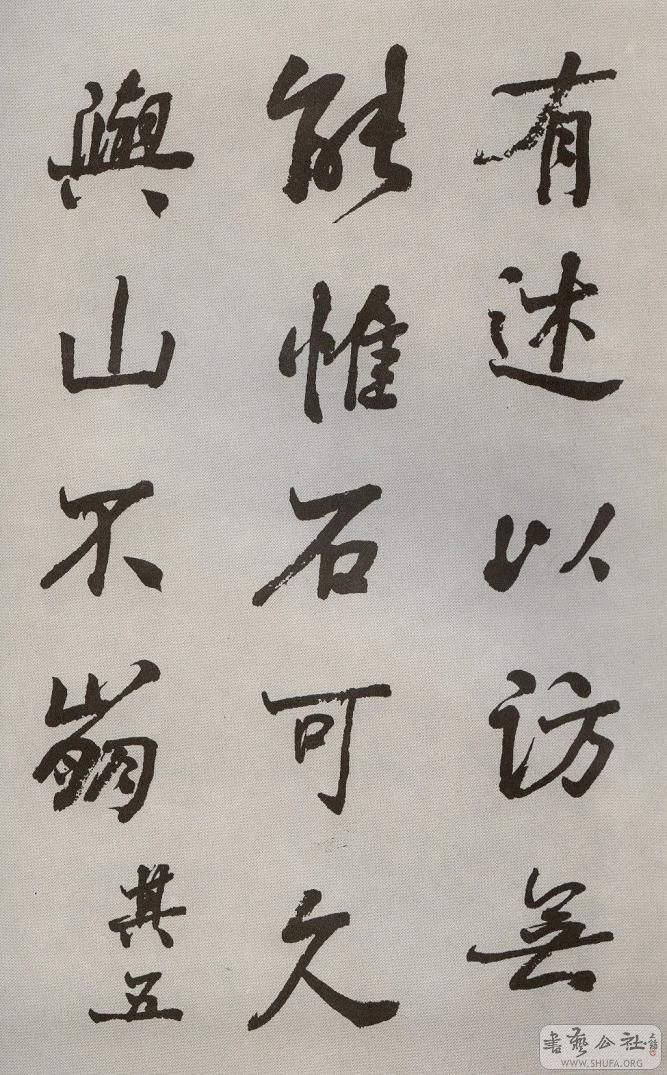 有述以訪無
能惟石可久
與山不崩
其五
書藝公社
WWW.SHUFA.ORG